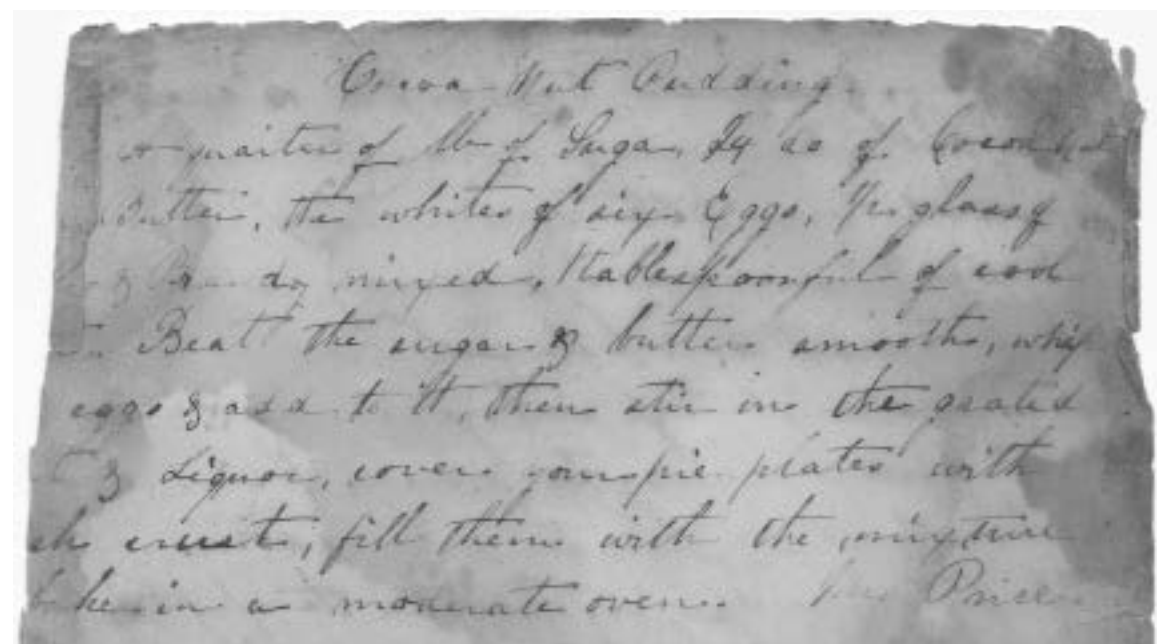 Cocoa Nut Pudding
a quarter of lb of Sugar, of Cocoa Nut
Butter, the whites of six Eggs, glass of
& Brandy mixed, tablespoonful of
Beat the sugar & butter smooth, whip
eggs & add to it, then stir in the grated
& Liquor, cover your pie plates with
crust, fill them with the mixture
in a moderate oven. Mrs Price